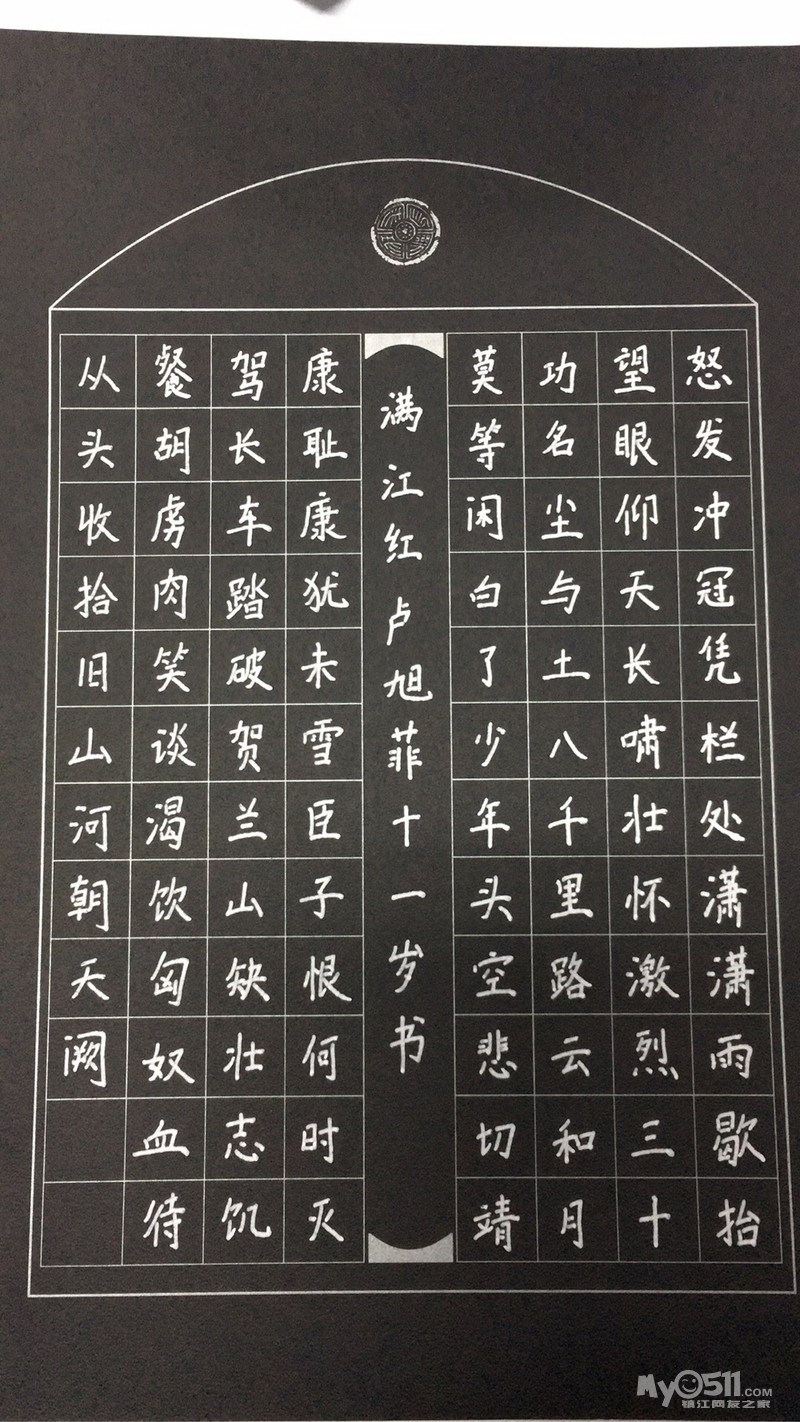 怒发冲冠凭栏处潇潇雨歇抬
望眼仰天长啸壮怀激烈三十
功名尘与土八千里路云和月
莫等闲白了少年头空悲切靖
满江红卢旭菲十一岁书
康耻康犹未雪臣子恨何时灭
驾长车踏破贺兰山缺壮志饥
餐胡虏肉笑谈渴饮匈奴血待
从头收拾旧山河朝天阙
My0511.COM
镇江网友之家